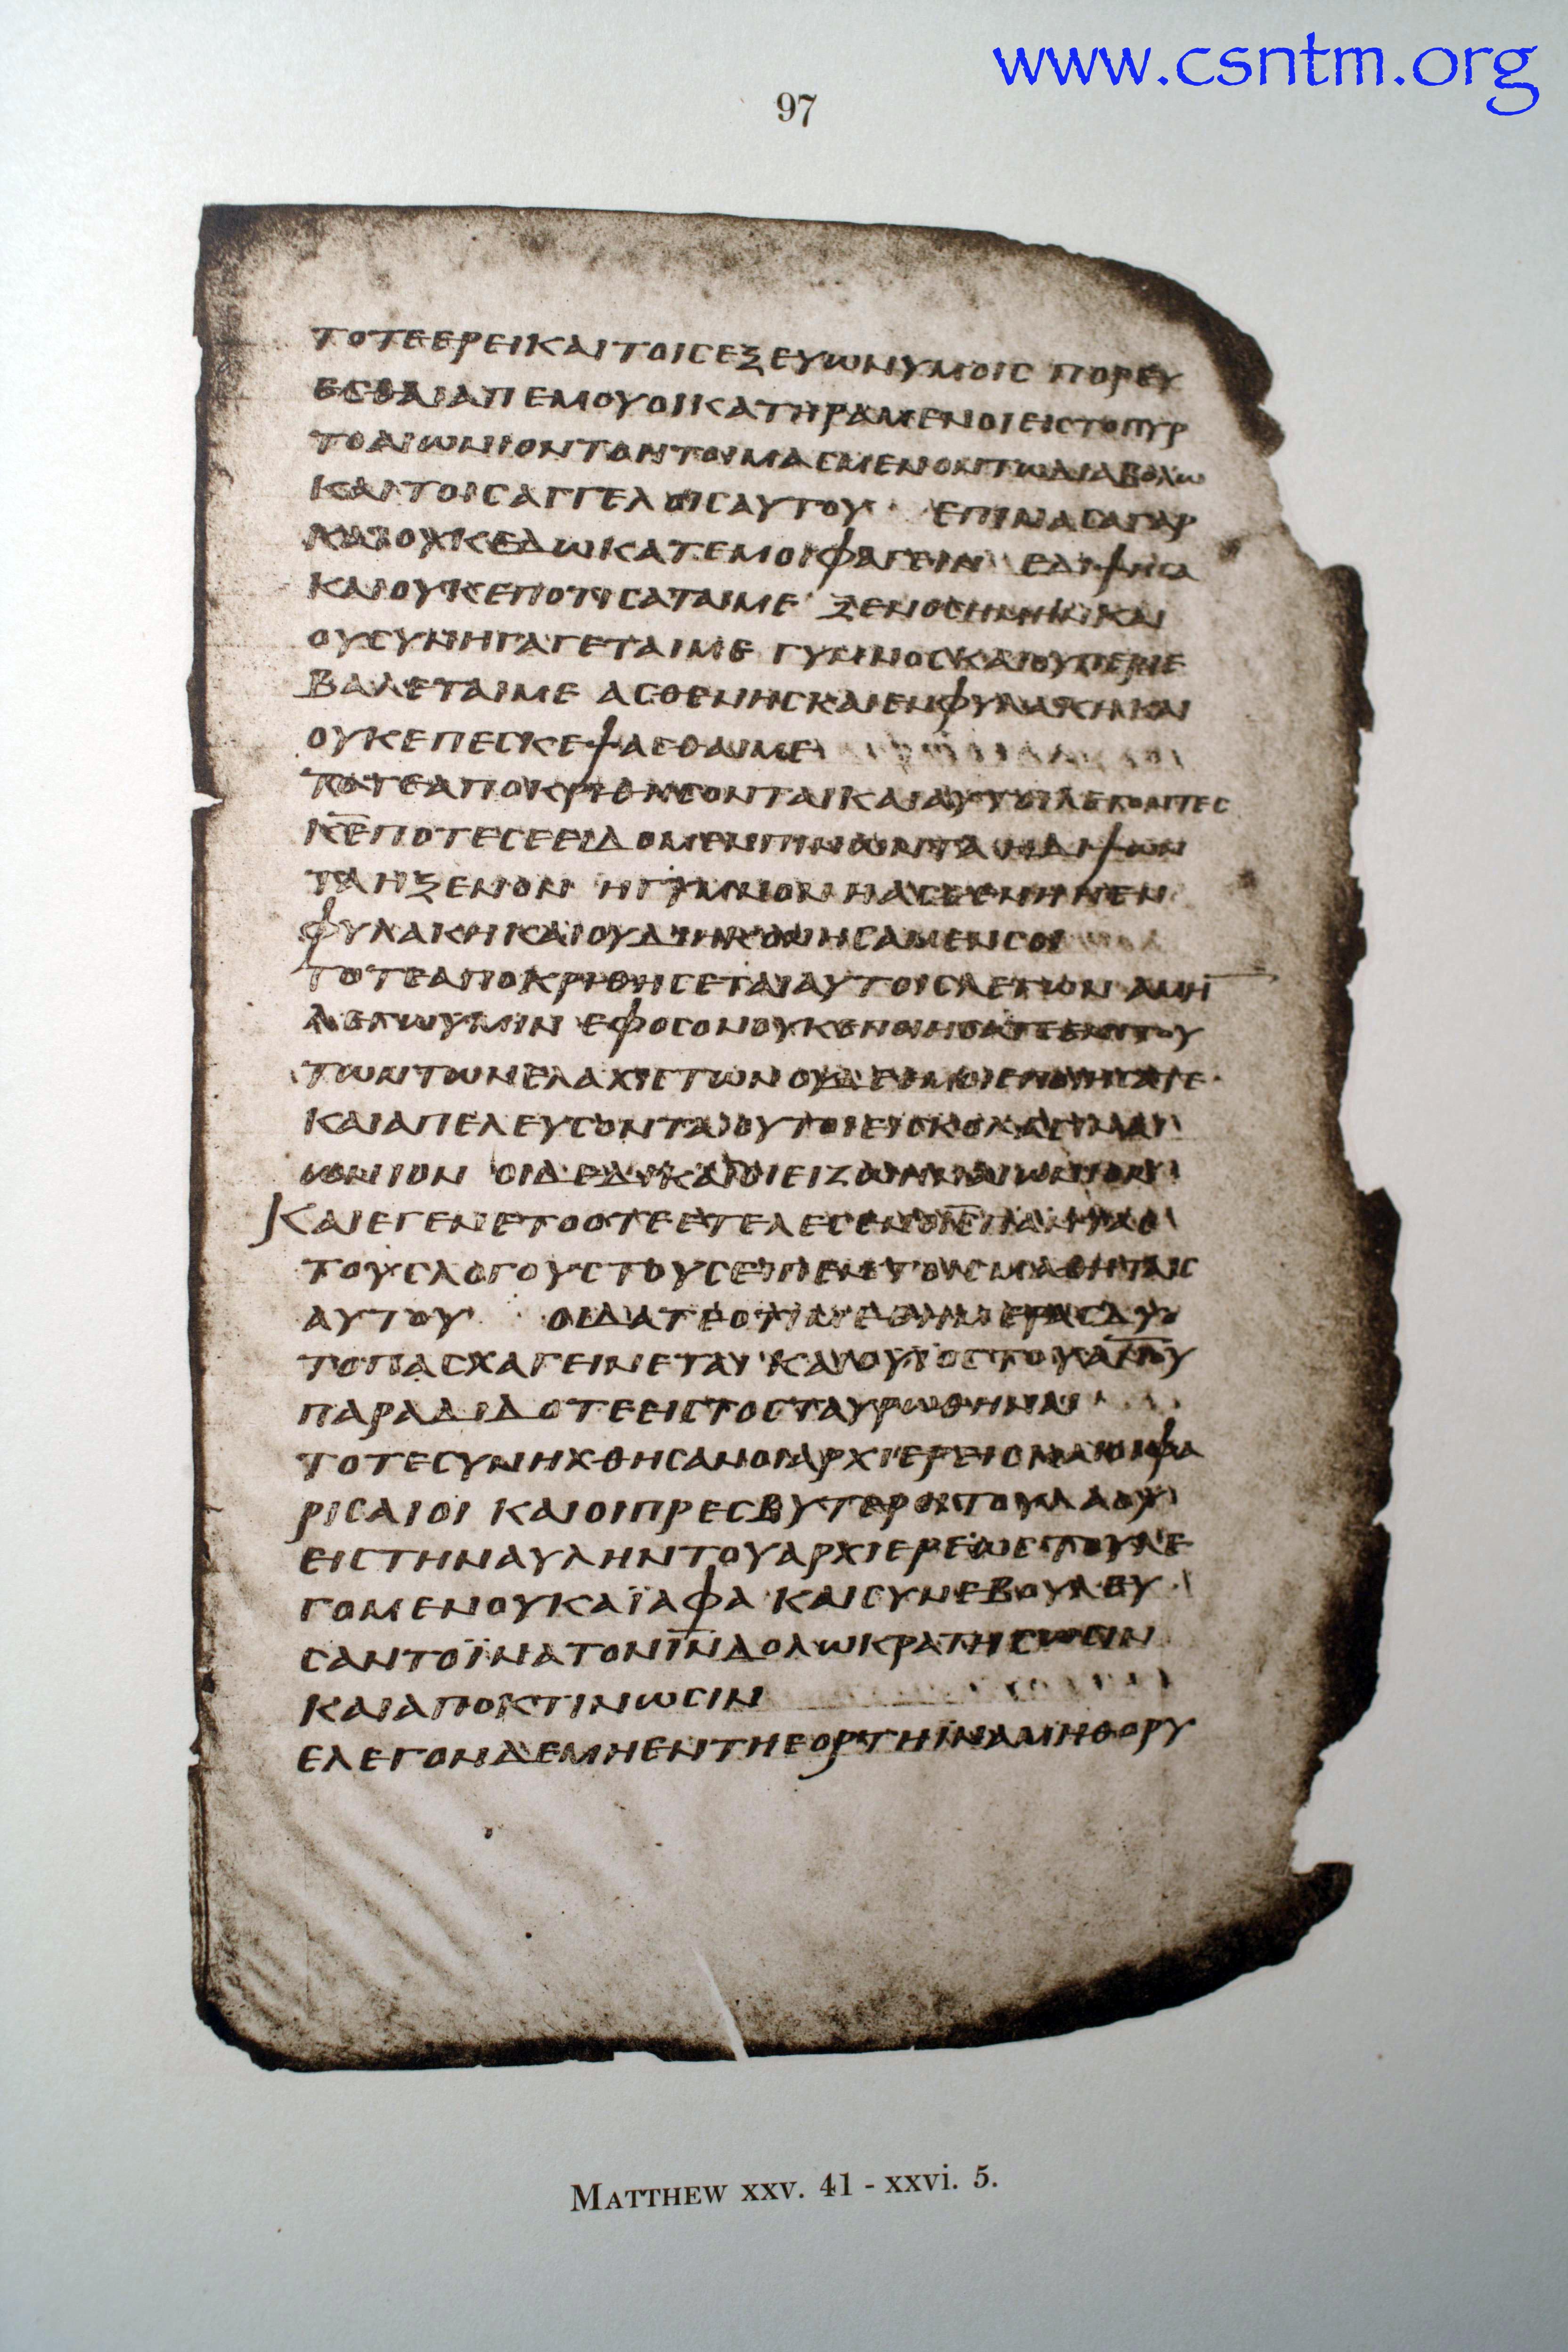 www.csntm.org
97
ΤΟΤΕΕΡΕΙΚΑΙΤΟΙCΕΞΕΥωΝΥΜΟΙC ΠΟΡΕΥ
ΕCΘΑΙΑΠΕΜΟΥΟΙΚΑΤΗΡΑΜΕΝΟΙΕΙCΤΟΠΥΡ
ΤΟΑΙωΝΙΟΝΤΟΗΤΟΙΜΑCΜΕΝΟΝΤωΔΙΑΒΟΛω
ΚΑΙΤΟΙCΑΓΓΕΛΟΙCΑΥΤΟΥ· ΕΠΙΝΑCΑΓΑΡ
ΚΑΙΟΥΚΕΔωΚΑΤΕΜΟΙΦΑΓΕΙΝ ΕΔΙΨΗCΑ
ΚΑΙΟΥΚΕΠΟΤΙCΑΤΑΙΜΕ ΞΕΝΟCΗΜΗΝΚΑΙ
ΟΥCΥΝΗΓΑΓΕΤΑΙΜΕ ΓΥΜΝΟCΚΑΙΟΥΠΕΡΙΕ
ΒΑΛΕΤΑΙΜΕ ΑCΘΕΝΗCΚΑΙΕΝΦΥΛΑΚΗΚΑΙ
ΟΥΚΕΠΕCΚΕΨΑCΘΑΙΜΕ
ΤΟΤΕΑΠΟΚΡΙΘΗCΟΝΤΑΙΚΑΙΑΥΤΟΙΛΕΓΟΝΤΕC
Κ̅Ε̅ΠΟΤΕCΕΕΙΔΟΜΕΝΠΙΝωΝΤΑΗΔΙΨωΝ
ΤΑΗΞΕΝΟΝ ΗΓΥΜΝΟΝΗΑCΘΕΝΗΗΕΝ
ΦΥΛΑΚΗΚΑΙΟΥΔΙΗΚΟΝΗCΑΜΕΝCΟΙ
ΤΟΤΕΑΠΟΚΡΙΘΗCΕΤΑΙΑΥΤΟΙCΛΕΓωΝ ΑΜΗ̅
ΛΕΓωΥΜΙΝ ΕΦΟCΟΝΟΥΚΕΠΟΙΗCΑΤΕΕΝΙΤΟΥ
ΤωΝΤωΝΕΛΑΧΙCΤωΝ ΟΥΔΕΕΜΟΙΕΠΟΙΗCΑΤΕ·
ΚΑΙΑΠΕΛΕΥCΟΝΤΑΙΟΥΤΟΙΕΙCΚΟΛΑCΙΝΑΙ
ωΝΙΟΝ ΟΙΔΕΔΙΚΑΙΟΙΕΙΖωΗΝΑΙωΝΙΟΝ
ΚΑΙΕΓΕΝΕΤΟΟΤΕΕΤΕΛΕCΕΝΟΙ̅C̅ΠΑΝΤΑC
ΤΟΥCΛΟΓΟΥCΤΟΥCΕΙΠΕΝΤΟΙCΜΑΘΗΤΑΙC
ΑΥΤΟΥ· ΟΙΔΑΤΕΟΤΙΜΕΘΗΜΕΡΑCΔΥΟ
ΤΟΠΑCΧΑΓΕΙΝΕΤΑΙ ΚΑΙΟΥΙΟCΤΟΥΑ̅Ν̅Ο̅Υ̅
ΠΑΡΑΔΙΔΟΤΕΕΙCΤΟCΤΑΥΡωΘΗΝΑΙ
ΤΟΤΕCΥΝΗΧΘΗCΑΝΟΙΑΡΧΙΕΡΕΙCΚΑΙΟΙΦΑ
ΡΙCΑΙΟΙ ΚΑΙΟΙΠΡΕCΒΥΤΕΡΟΙΤΟΥΛΑΟΥ
ΕΙCΤΗΝΑΥΛΗΝΤΟΥΑΡΧΙΕΡΕωCΤΟΥΛΕ
ΓΟΜΕΝΟΥΚΑΪΑΦΑ ΚΑΙCΥΝΕΒΟΥΛΕΥ
CΑΝΤΟΪΝΑΤΟΝΙ̅Ν̅ΔΟΛωΚΡΑΤΗCωCΙΝ
ΚΑΙΑΠΟΚΤΙΝωCΙΝ
ΕΛΕΓΟΝΔΕΜΗΕΝΤΗΕΟΡΤΗΪΝΑΜΗΘΟΡΥ
MATTHEW xxv. 41 - xxvi. 5.